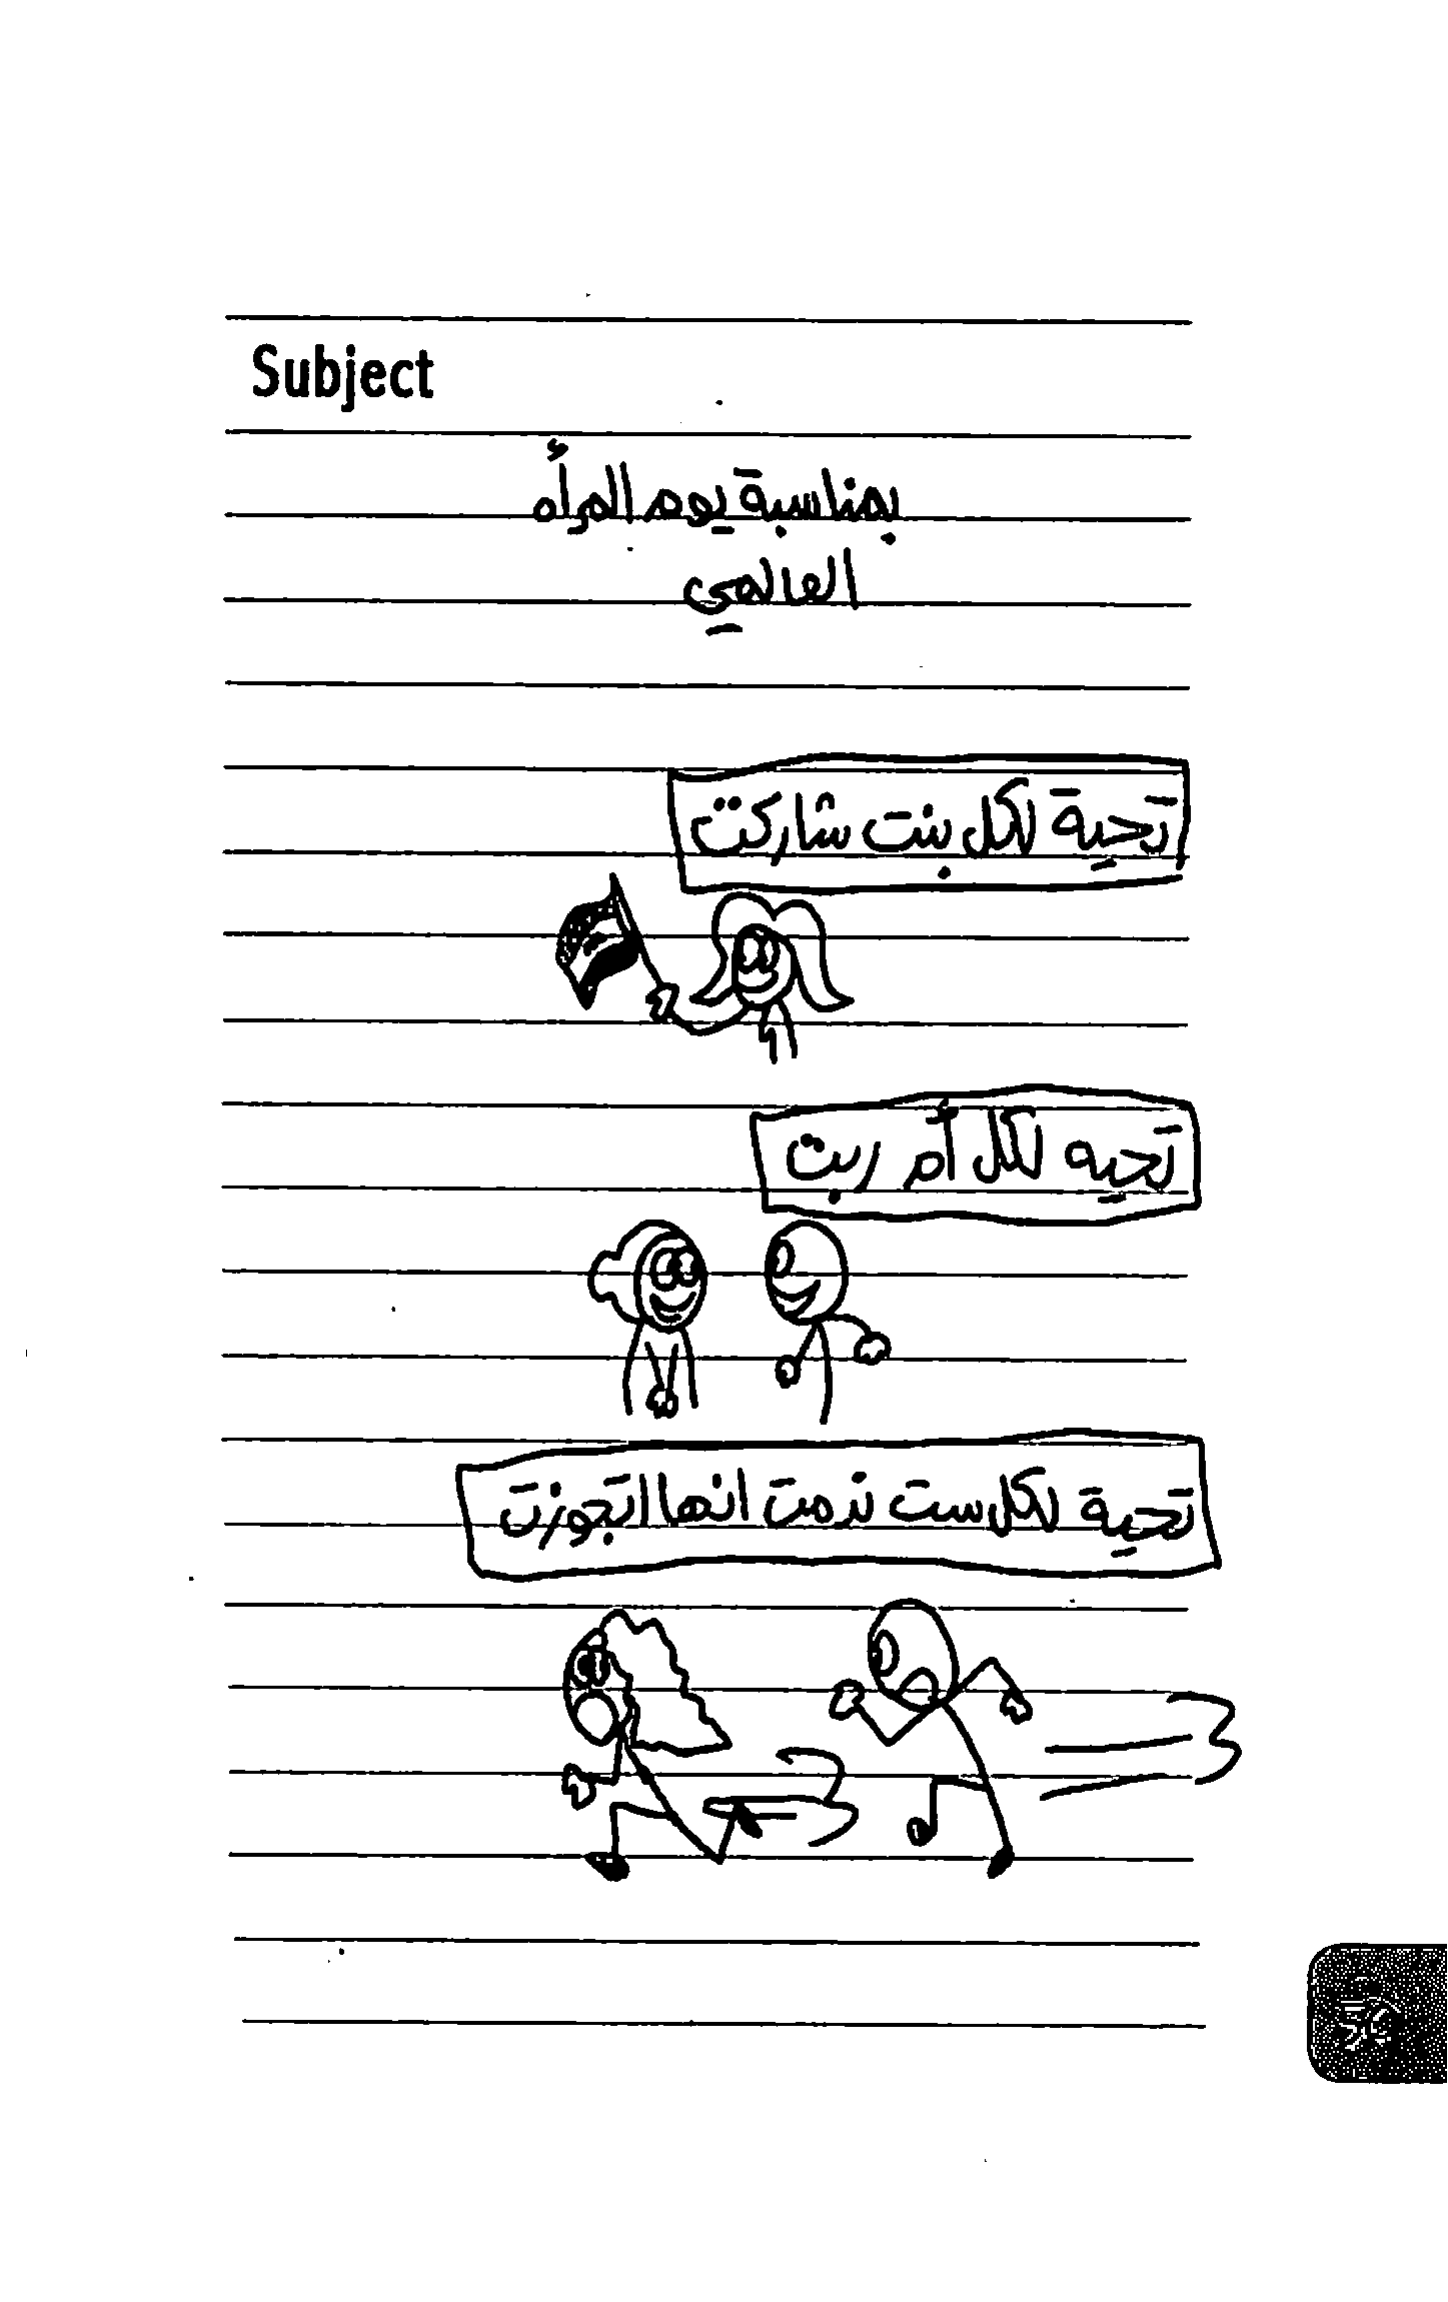 Subject
بمناسبة يوم المرأه
العالمي
تحية لكل بنت شاركت
تحيه لكل أم ربت
تحية لكل ست ندمت انها اتجوزت